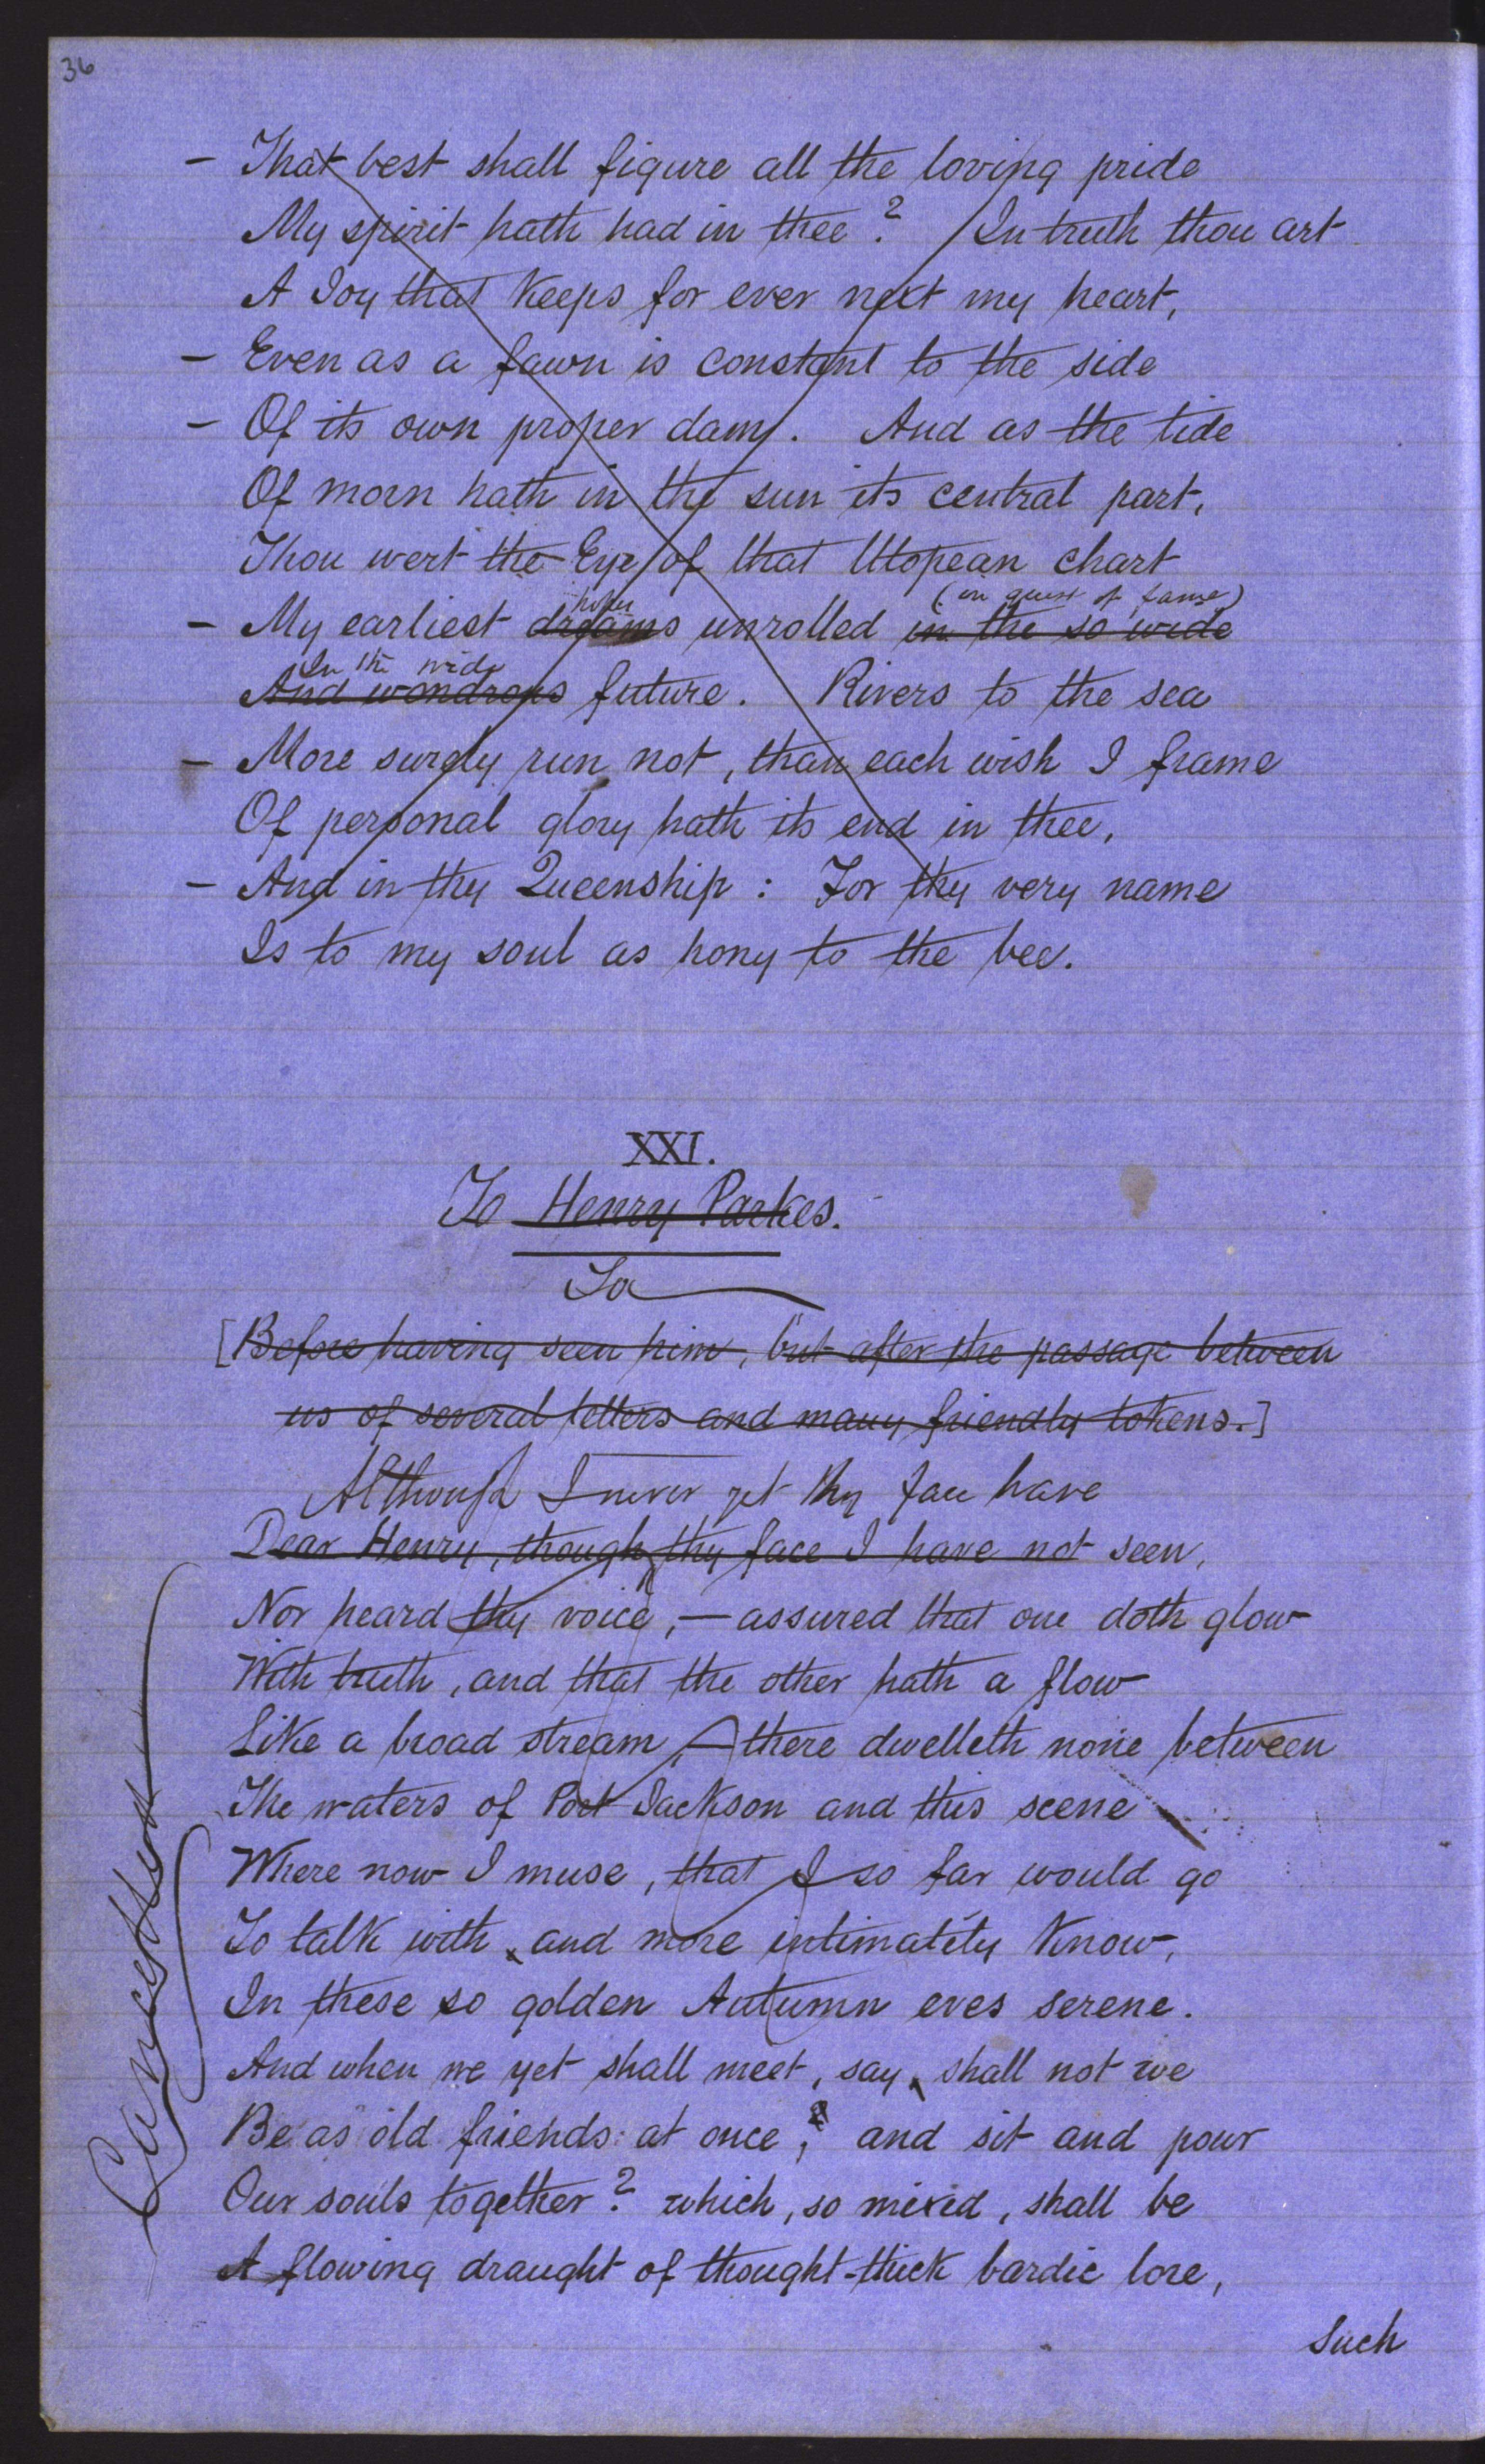 36
– That best shall figure all the loving pride
My spirit hath had in thee? In truth thou art
A Joy that keeps for ever next my heart,
– Even as a fawn is constant to the side
– Of its own proper dam. And as the tide
Of morn hath in the sun its central part,
Thou wert the Eye of that Utopean chart
hopes (in quest of fame)
– My earliest dreams unrolled in the so wide
In the wide
And wondrous future. Rivers to the sea
– More surely run not, than each wish I frame
Of personal glory hath its end in thee,
– And in thy Queenship: For thy very name
Is to my soul as hony to the bee.
XXI.
To Henry Parkes.
To
[Before having seen him, but after the passage between
us of several letters and many friendly tokens.]
Although I never yet thy face have
Dear Henry, though thy face I have not seen,
Nor heard thy voice, — assured that one doth glow
With truth, and that the other hath a flow
Like a broad stream, — there dwelleth none between
The waters of Port Jackson and this scene
Where now I muse, that I so far would go
To talk with, and more intimately know,
In these so golden Autumn eves serene.
And when we yet shall meet, say, shall not we
Be as old friends at once, and sit and pour
Our souls together? which, so mixed, shall be
A flowing draught of thought-thick bardic lore,
Such
Cancelled